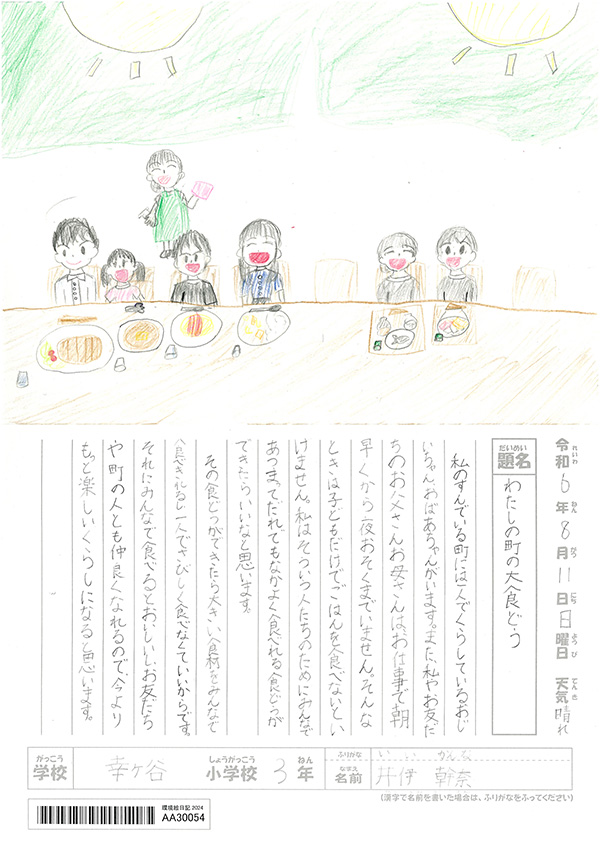 令和6年8月11日日曜日 天気晴れ
れいわ ねん がつ にち ようび てんき
だいめい
題名 わたしの町の大食どう
私のすんでいる町には一人でくらしているおじ
いちゃん、おばあちゃんがいます。また、私やお友だ
ちのお父さんお母さんは、お仕事で朝
早くから夜おそくまでいません。そんな
ときは子どもだけでごはんを食べないとい
けません。私はそういう人たちのためにみんなで
あつまってだれでもなかよく食べれる食どうが
できたらいいなと思います。
その食どうができたら大きい食材をみんなで
食べきれるし一人でさびしく食べなくていいからです。
それにみんなで食べるとおいしいしお友だち
や町の人とも仲良くなれるので、今より
もっと楽しいくらしになると思います。
がっこう しょうがっこう ねん ふりがな いい かんな
学校 幸ヶ谷 小学校 3年 名前 井伊 幹奈
なまえ
(漢字で名前を書いた場合は、ふりがなをふってください)
環境絵日記2024
AA30054